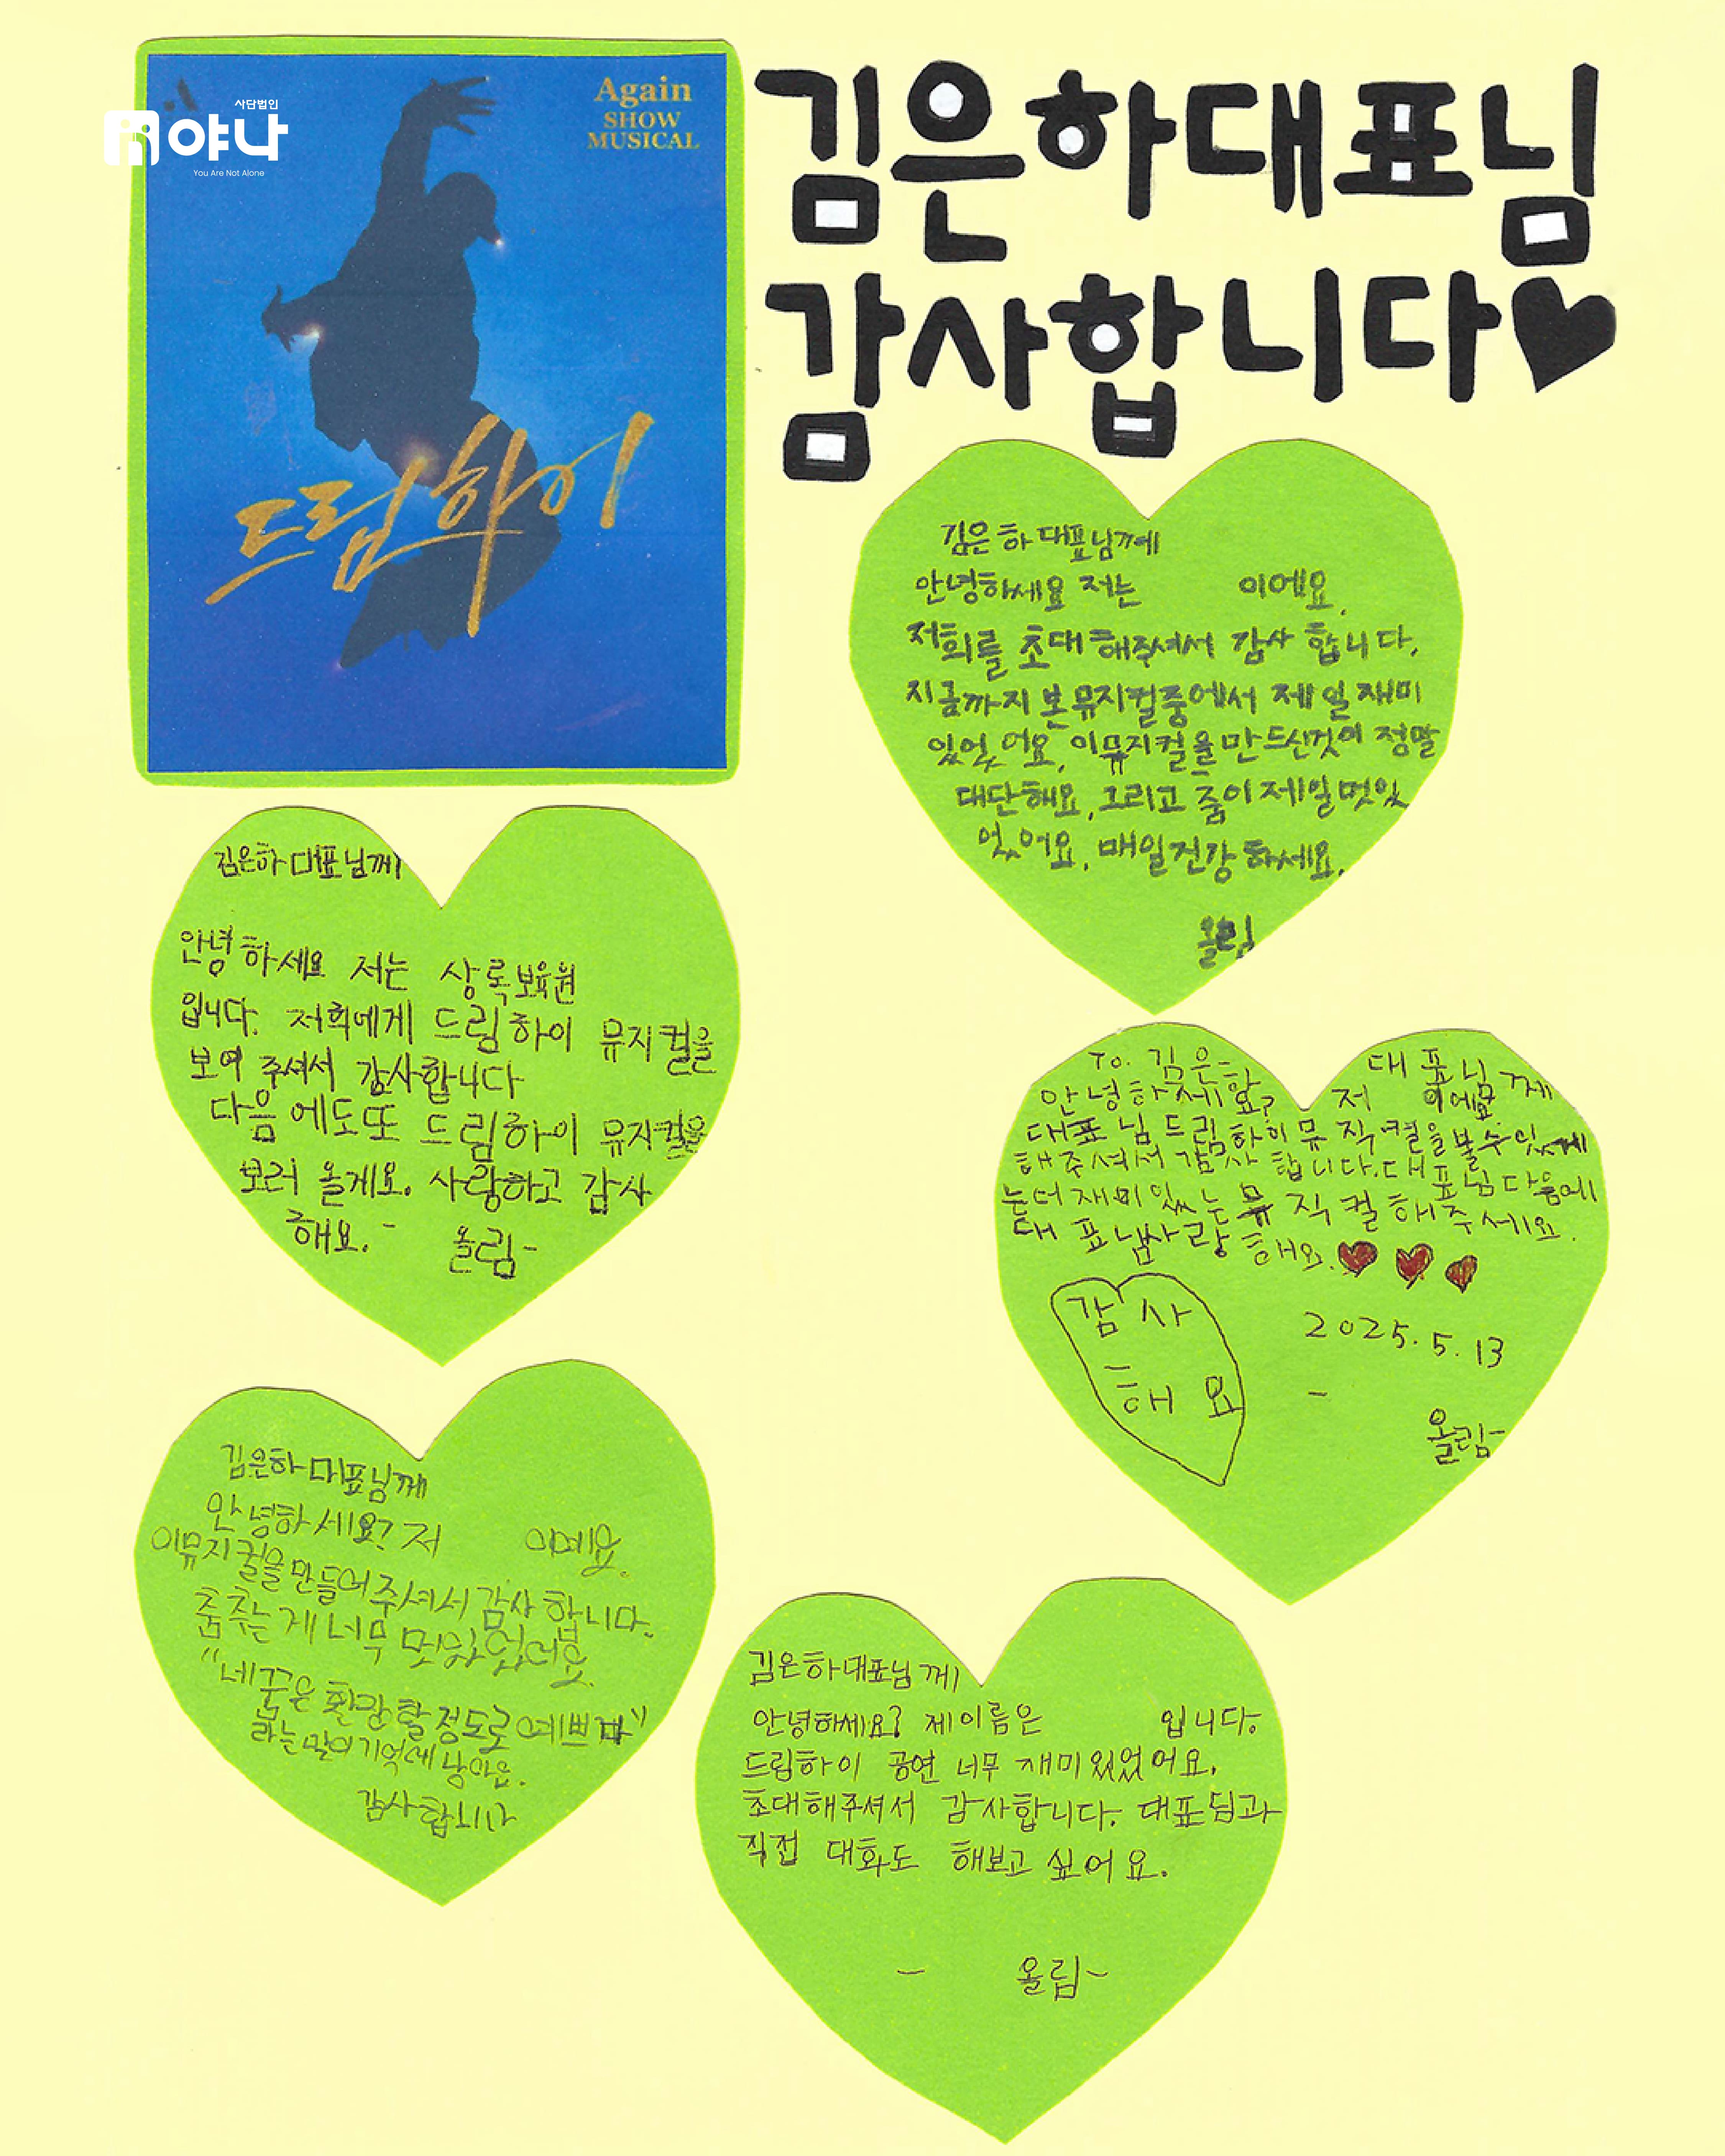 사단법인
야나
You Are Not Alone
Again
SHOW
MUSICAL
드림하이
김은하대표님
감사합니다♥
김은하 대표님께
안녕하세요 저는 이에요.
저희를 초대해주셔서 감사 합니다.
지금까지 본뮤지컬중에서 제일 재미
있었어요. 이뮤지컬을만드신것이 정말
대단해요. 그리고 춤이제일멋있
었어요. 매일건강하세요.
올림
김은하 대표님께
안녕하세요 저는 상록보육원
입니다. 저희에게 드림하이 뮤지컬을
보여 주셔서 감사합니다
다음에도또 드림하이 뮤지컬을
보러 올게요. 사랑하고 감사
해요. - 올림-
To. 김은하 대표님께
안녕하세요? 저 이에요
대표님 드림하이 뮤직컬을볼수있게
해주셔서 감사합니다. 대표님 다음에
는더재미있는 뮤직컬해주세요.
대표님사랑해요. ♥♥♥
감사
해요
2025. 5. 13
- 올림-
김은하 대표님께
안녕하세요? 저 이에요.
이뮤지컬을만들어주셔서감사합니다.
춤추는게너무멋있었어요.
"네꿈은 환장할정도로예쁘다"
라는말이기억에남아요.
감사합니다
김은하대표님께
안녕하세요? 제이름은 입니다.
드림하이 공연 너무 재미있었어요.
초대해주셔서 감사합니다. 대표님과
직접 대화도 해보고 싶어요.
- 올림-